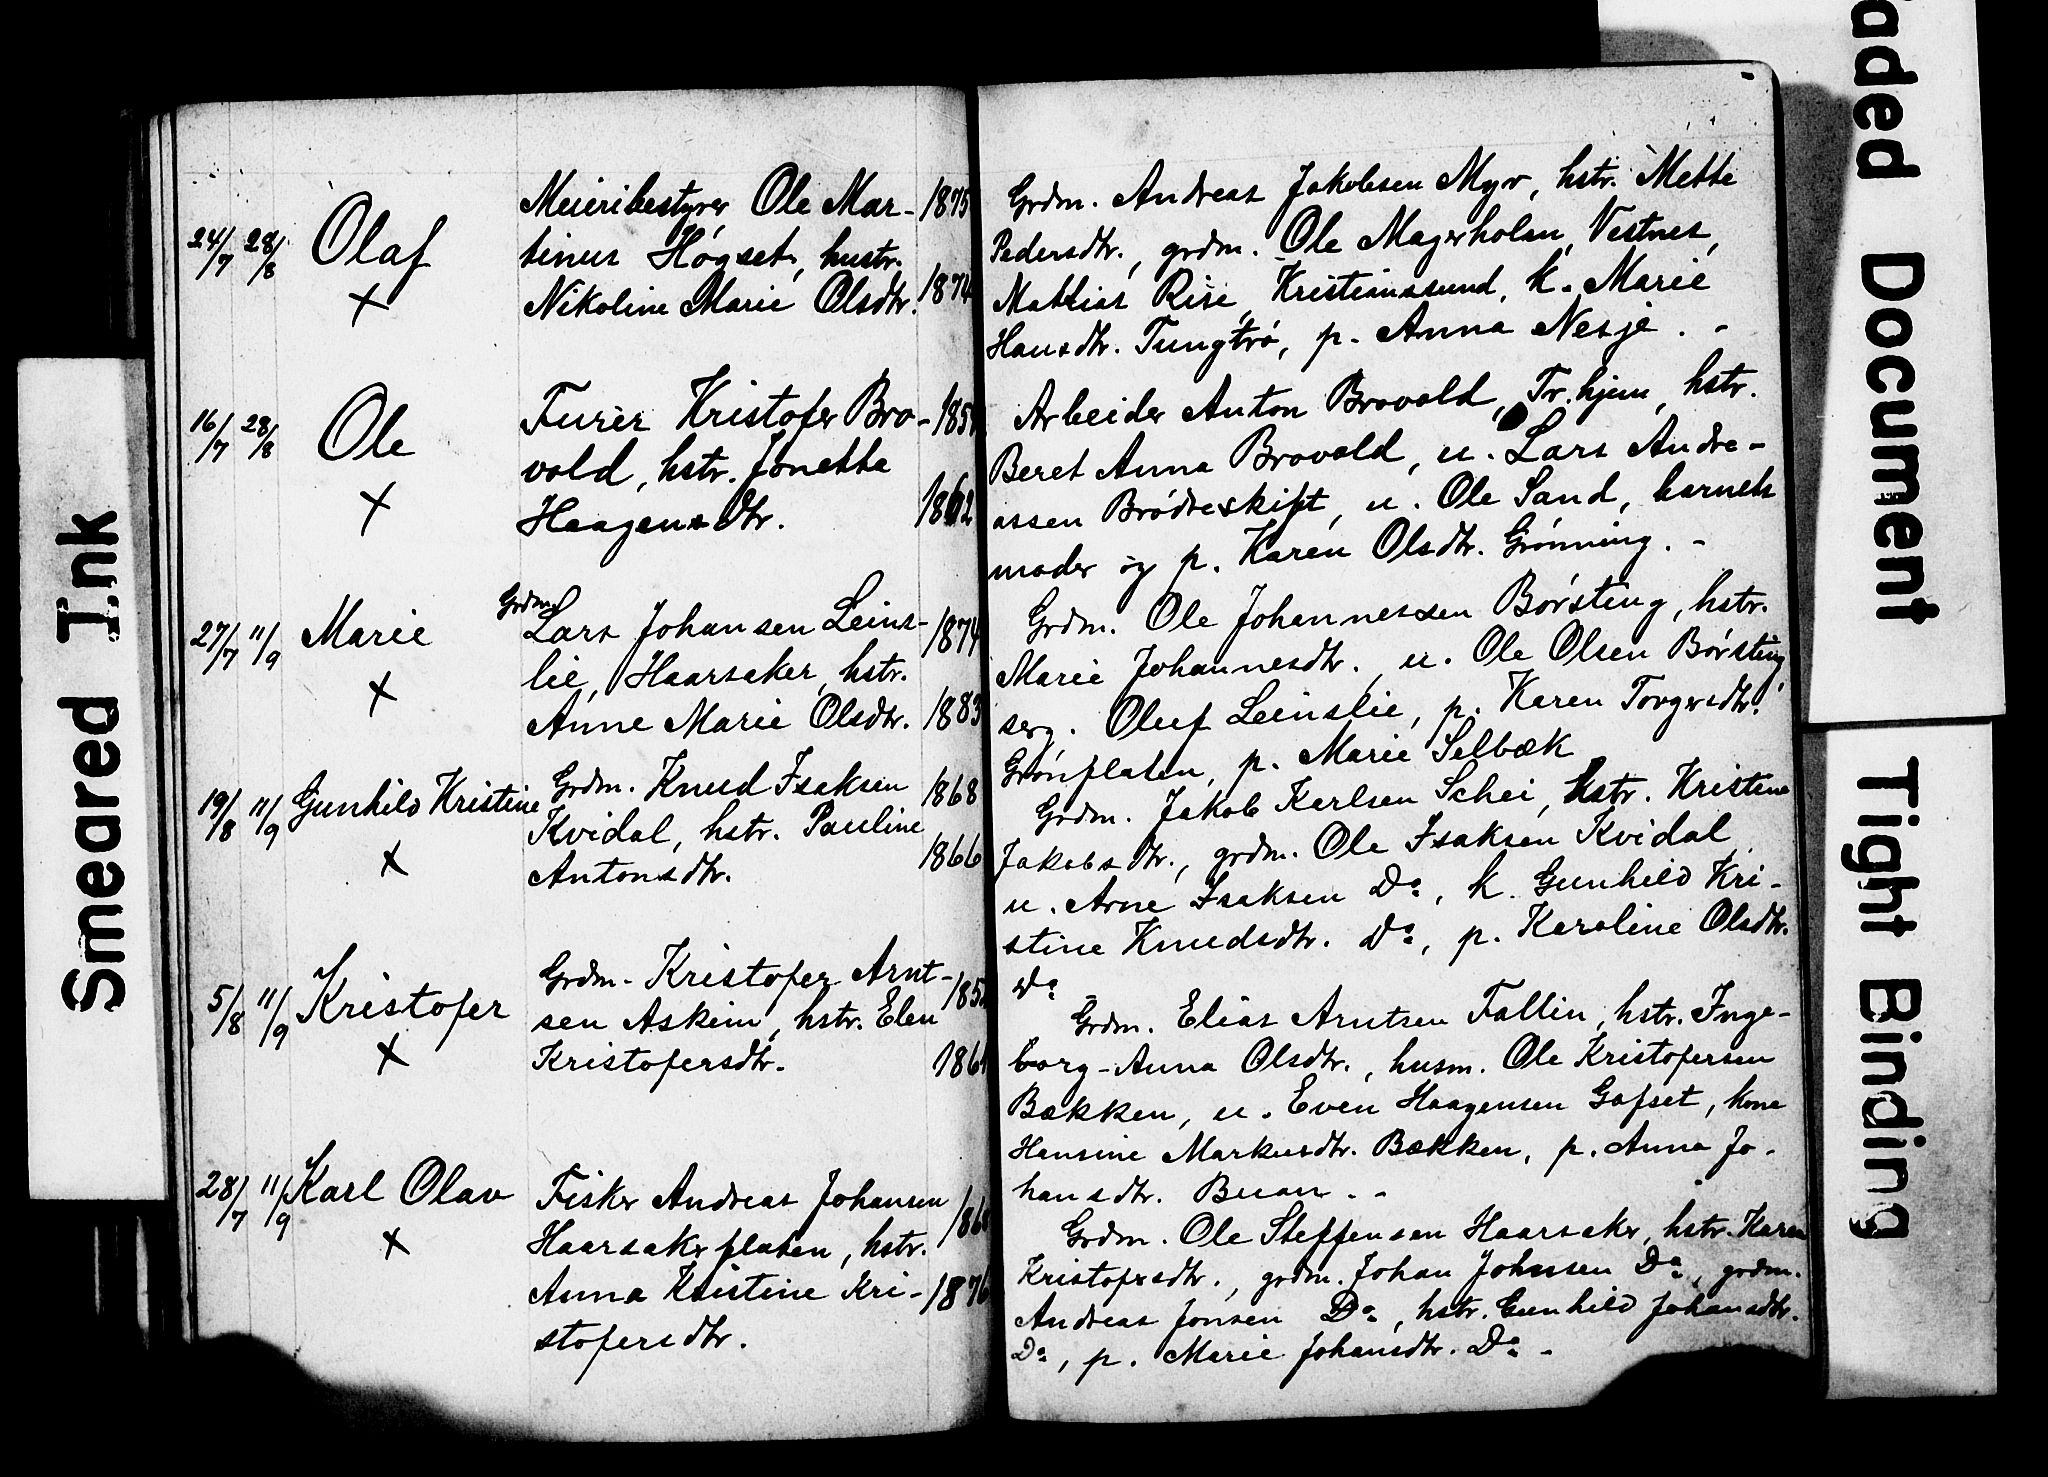 24/7 28/8 Olaf
×
Meieribestyrer Ole Mar- 1875
tinus Høgset, hustr.
Nikoline Marie Olsdtr. 1874
Grdm. Andreas Jakobsen Myr, hstr. Mette
Pedersdtr., grdm. Ole Magerholm, Vestnes,
Mattias Rise, Kristianssund, k. Marie
Hansdtr. Tungtrø, p. Anna Nesje. -
16/7 28/8 Ole
×
Furer Kristofer Bro-
vold, hstr. Jonetta
Haagensdtr. 1862
Arbeider Anton Brovold, Tr.hjem, hstr.
Beret Anna Brovold, u. Lars Andre-
assen Brødreskift, u. Ole Sand, barnets
moder og p. Karen Olsdtr. Grønning. -
27/7 11/9 Marie
×
Grdm.
Lars Johansen Leins- 1874
lie, Haarsaker, hstr.
Anne Marie Olsdtr. 1883
Grdm. Ole Johannessen Børsting, hstr.
Marie Johannesdtr., u. Ole Olsen Børsting,
serg. Oluf Leinslie, p. Karen Torgersdtr.
Grønplaten, p. Marie Selbæk
19/8 11/9 Gunhild Kristine
×
Grdm. Knud Isaksen 1868
Kvidal, hstr. Pauline
Antonsdtr. 1866
Grdm. Jakob Karlsen Schei, hstr. Kristine
Jakobsdtr., grdm. Ole Isaksen Kvidal,
u. Arne Isaksen Do, k. Gunhild Kri-
stine Knudsdtr. Do, p. Karoline Olsdtr.
Do -
5/8 11/9 Kristofer
×
Grdm. Kristofer Arnt-
sen Askim, hstr. Elen
Kristofersdtr.
Grdm. Elias Arntsen Fallin, hstr. Inge-
borg-Anna Olsdtr., husm. Ole Kristofersen
Bækken, u. Even Haagensen Gafset, kone
Hansine Markusdtr. Bækken, p. Anna Jo-
hansdtr. Buan. -
28/7 11/9 Karl Olav
×
Fisker Andreas Johansen
Haarsakrplaten, hstr.
Anna Kristine Kri- 1876
stofersdtr.
Grdm. Ole Steffensen Haarsakr, hstr. Karen
Kristofersdtr., grdm. Johan Johnsen Do, grdm.
Andreas Jonsen Do, hstr. Gunhild Johansdtr.
Do, p. Marie Johansdtr. Do -
Smeared Ink
Faded Document
Tight Binding